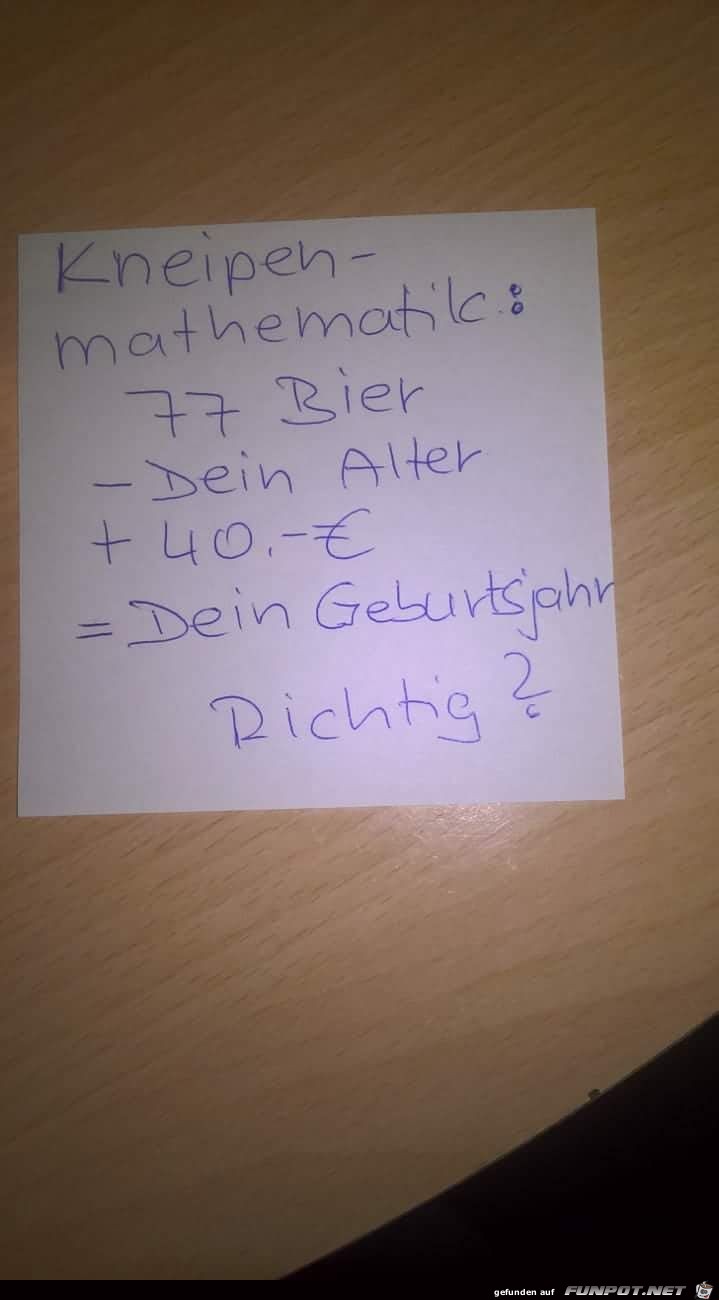 Kneipen-
mathematik:
77 Bier
- Dein Alter
+ 40.-€
= Dein Geburtsjahr
Richtig?
gefunden auf FUNPOT.NET